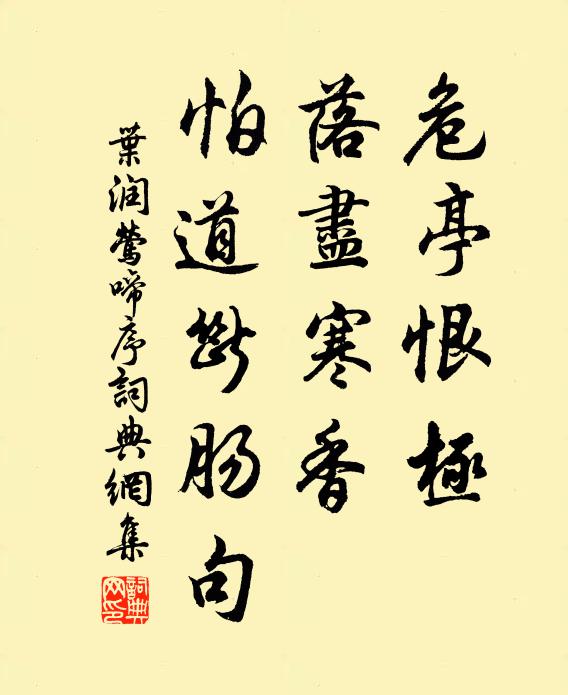 危亭恨極
落盡寒香
怕道斷腸句
葉润鶯啼序詞典網集
詞典网印